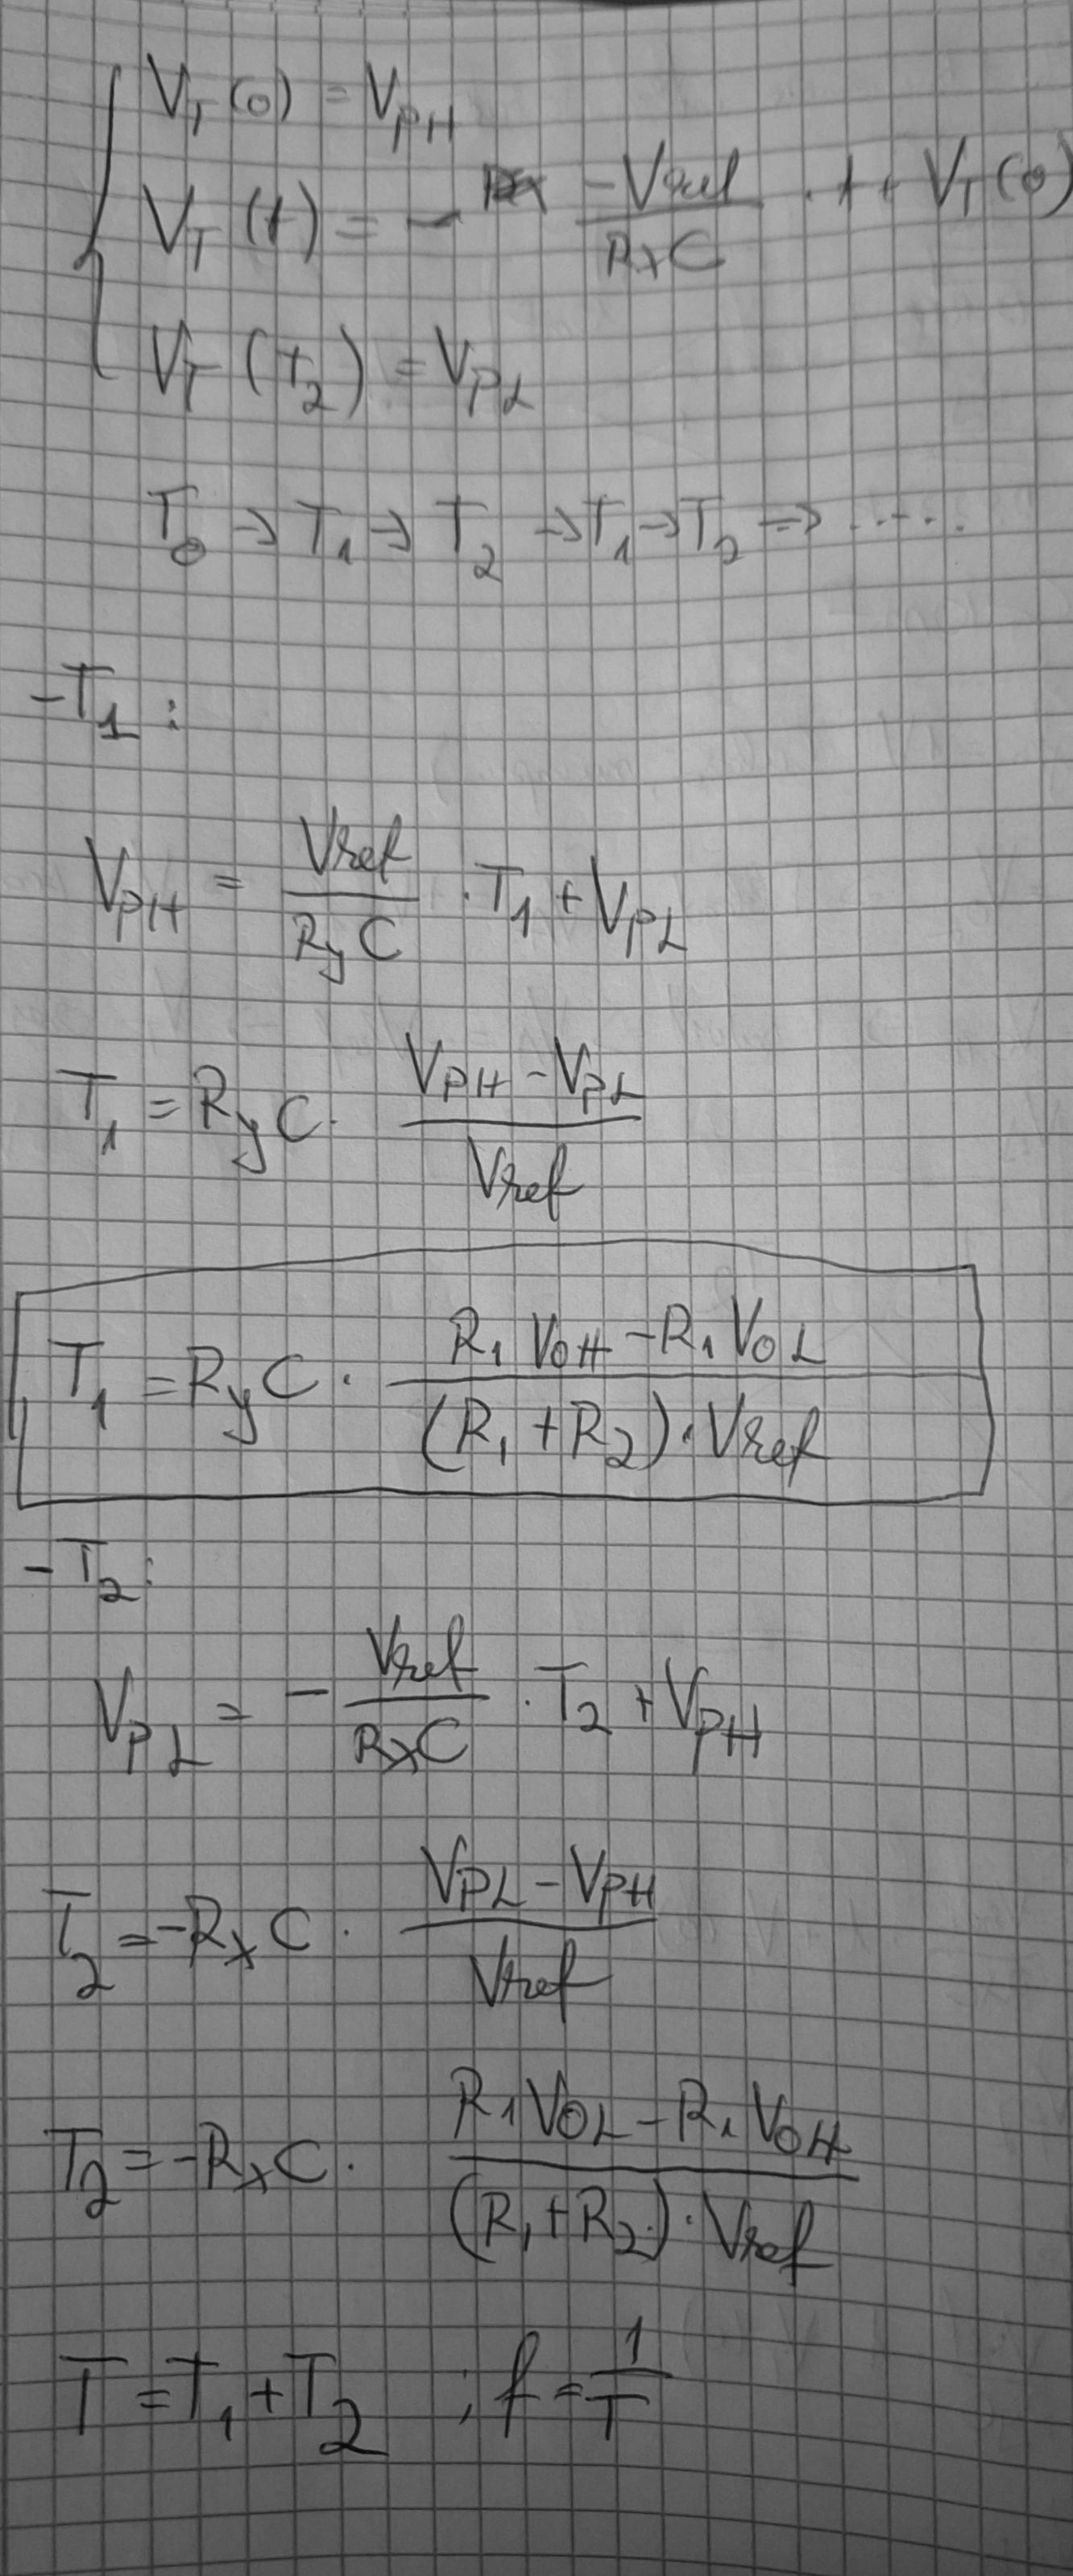 V_T(0) = V_PH
V_T(t) = - (-Vref)/(RxC) · t + V_T(0)
V_T(t_2) = V_PL
T_0 → T_1 → T_2 → T_1 → T_2 ⇒ ......
- T_1 :
V_PH = Vref/(RyC) · T_1 + V_PL
T_1 = RyC · (V_PH - V_PL)/Vref
T_1 = RyC · (R_1 V_OH - R_1 V_OL)/((R_1 + R_2) · Vref)
- T_2 :
V_PL = - Vref/(RxC) · T_2 + V_PH
T_2 = -RxC · (V_PL - V_PH)/Vref
T_2 = -RxC · (R_1 V_OL - R_1 V_OH)/((R_1 + R_2) · Vref)
T = T_1 + T_2 ; f = 1/T